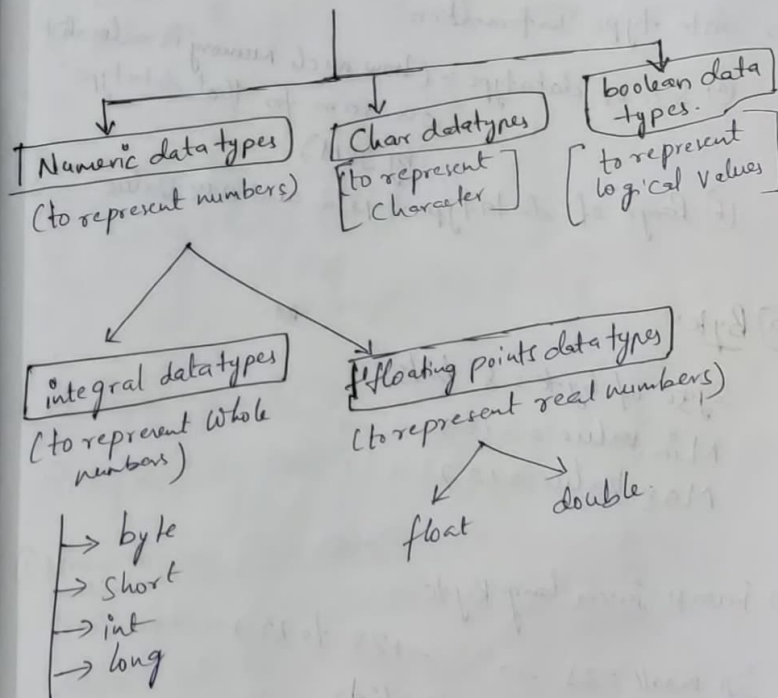 Numeric data types
(to represent numbers)
Char datatypes
[to represent
Character]
boolean data
types.
[to represent
logical values]
integral datatypes
(to represent Whole
numbers)
floating points datatypes
(to represent real numbers)
float
double.
→ byte
→ Short
→ int
→ long